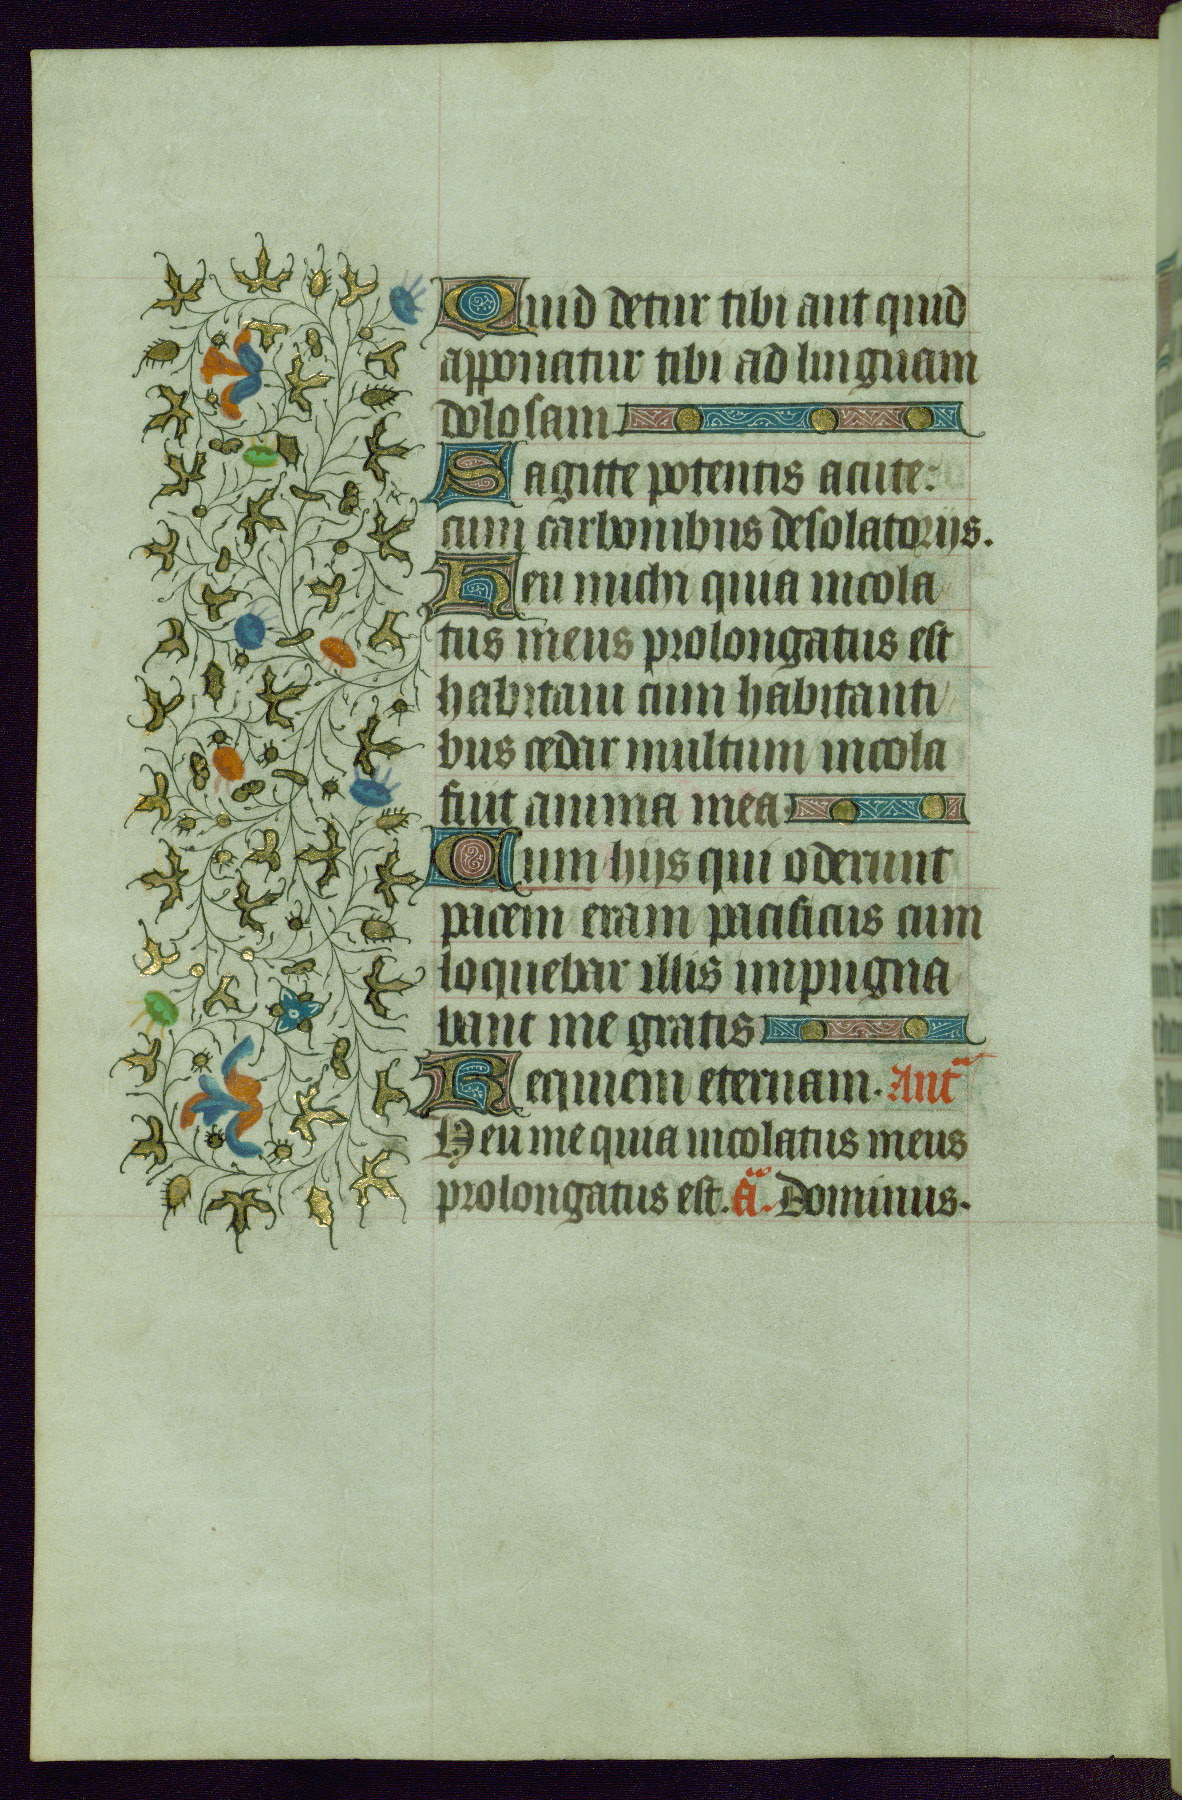 Quid detur tibi aut quid
apponatur tibi ad linguam
dolosam
Sagitte potentis acute:
cum carbonibus desolatorijs.
Heu michi quia incola
tus meus prolongatus est
habitaui cum habitanti
bus cedar multum incola
fuit anima mea
Cum hijs qui oderunt
pacem eram pacificus cum
loquebar illis impugna
bant me gratis
Requiem eternam. Ant̃
Heu me quia incolatus meus
prolongatus est. a͂. Dominus.